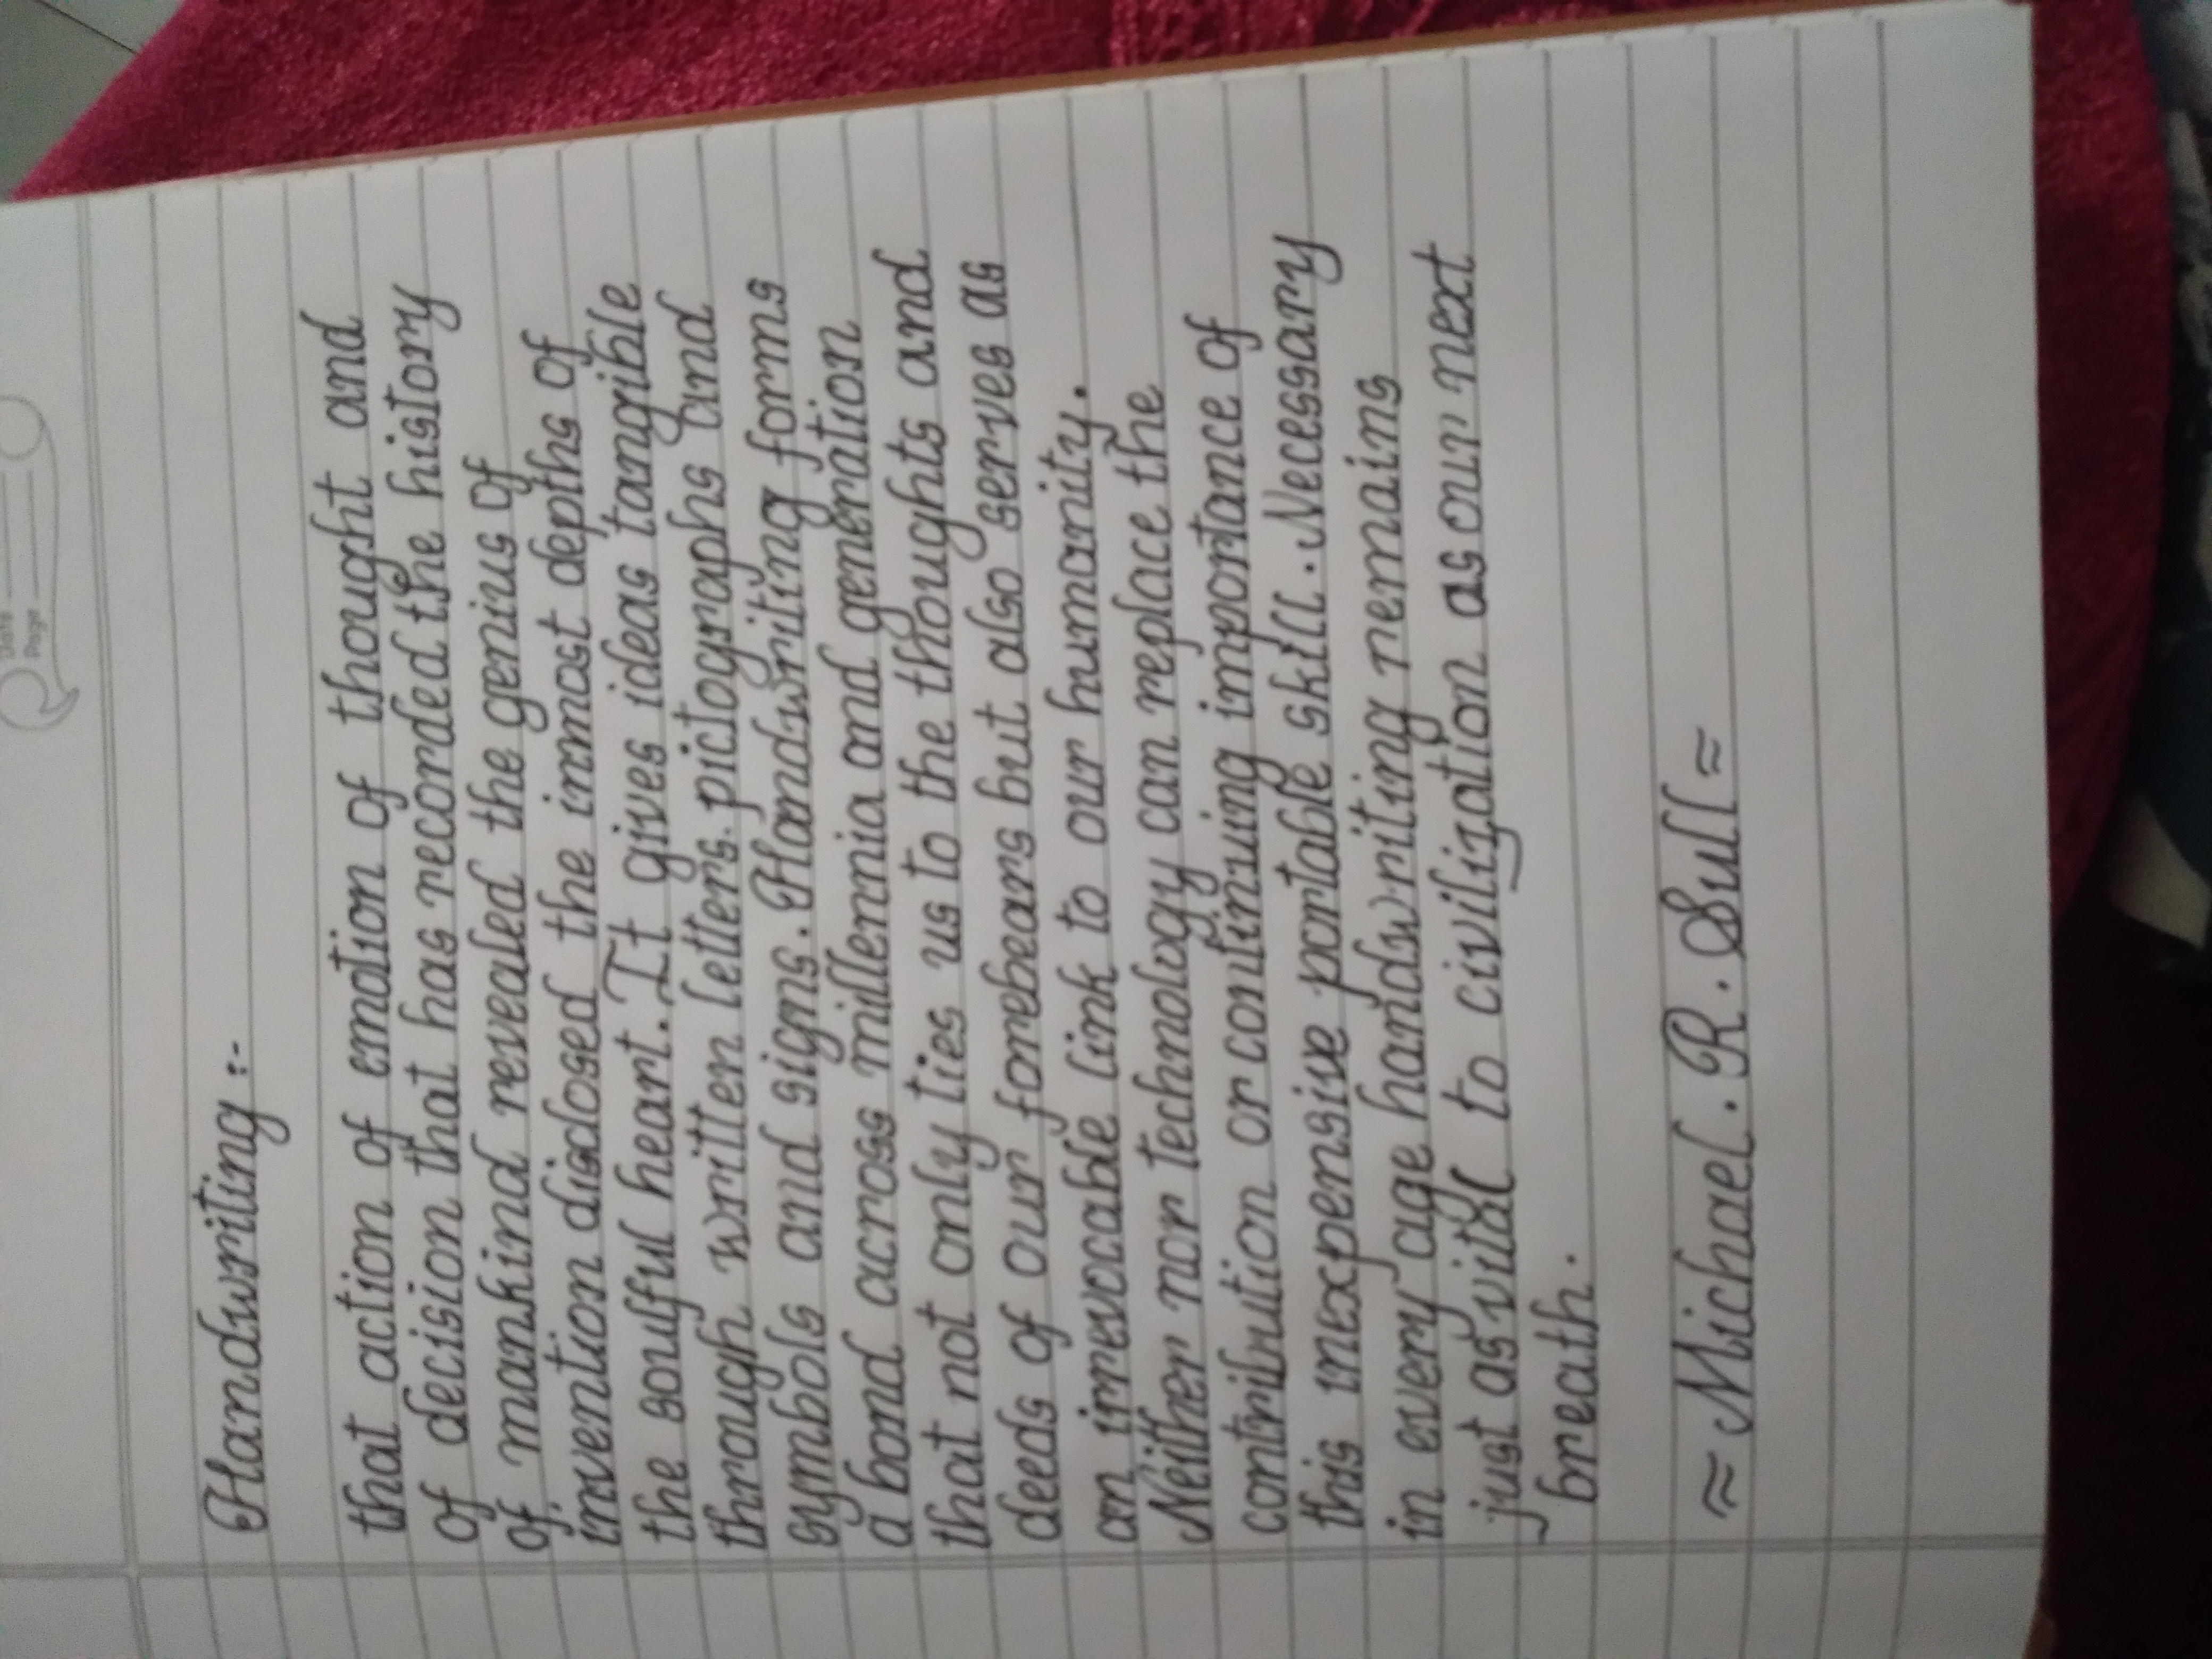 Date
Page
Handwriting :-
that action of emotion of thought and
of decision that has recorded the history
of mankind revealed the genius of
invention disclosed the inmost depths of
the soulful heart. It gives ideas tangible
through written letters. pictographs and
symbols and signs. Handwriting forms
a bond across millennia and generation
that not only ties us to the thoughts and
deeds of our forebears but also serves as
an irrevocable link to our humanity.
Neither nor technology can replace the
contribution or continuing importance of
this inexpensive portable skill. Necessary
in every age handwriting remains
just as vital to civilization as our next
breath.
≈ Michael. R. Sull ≈